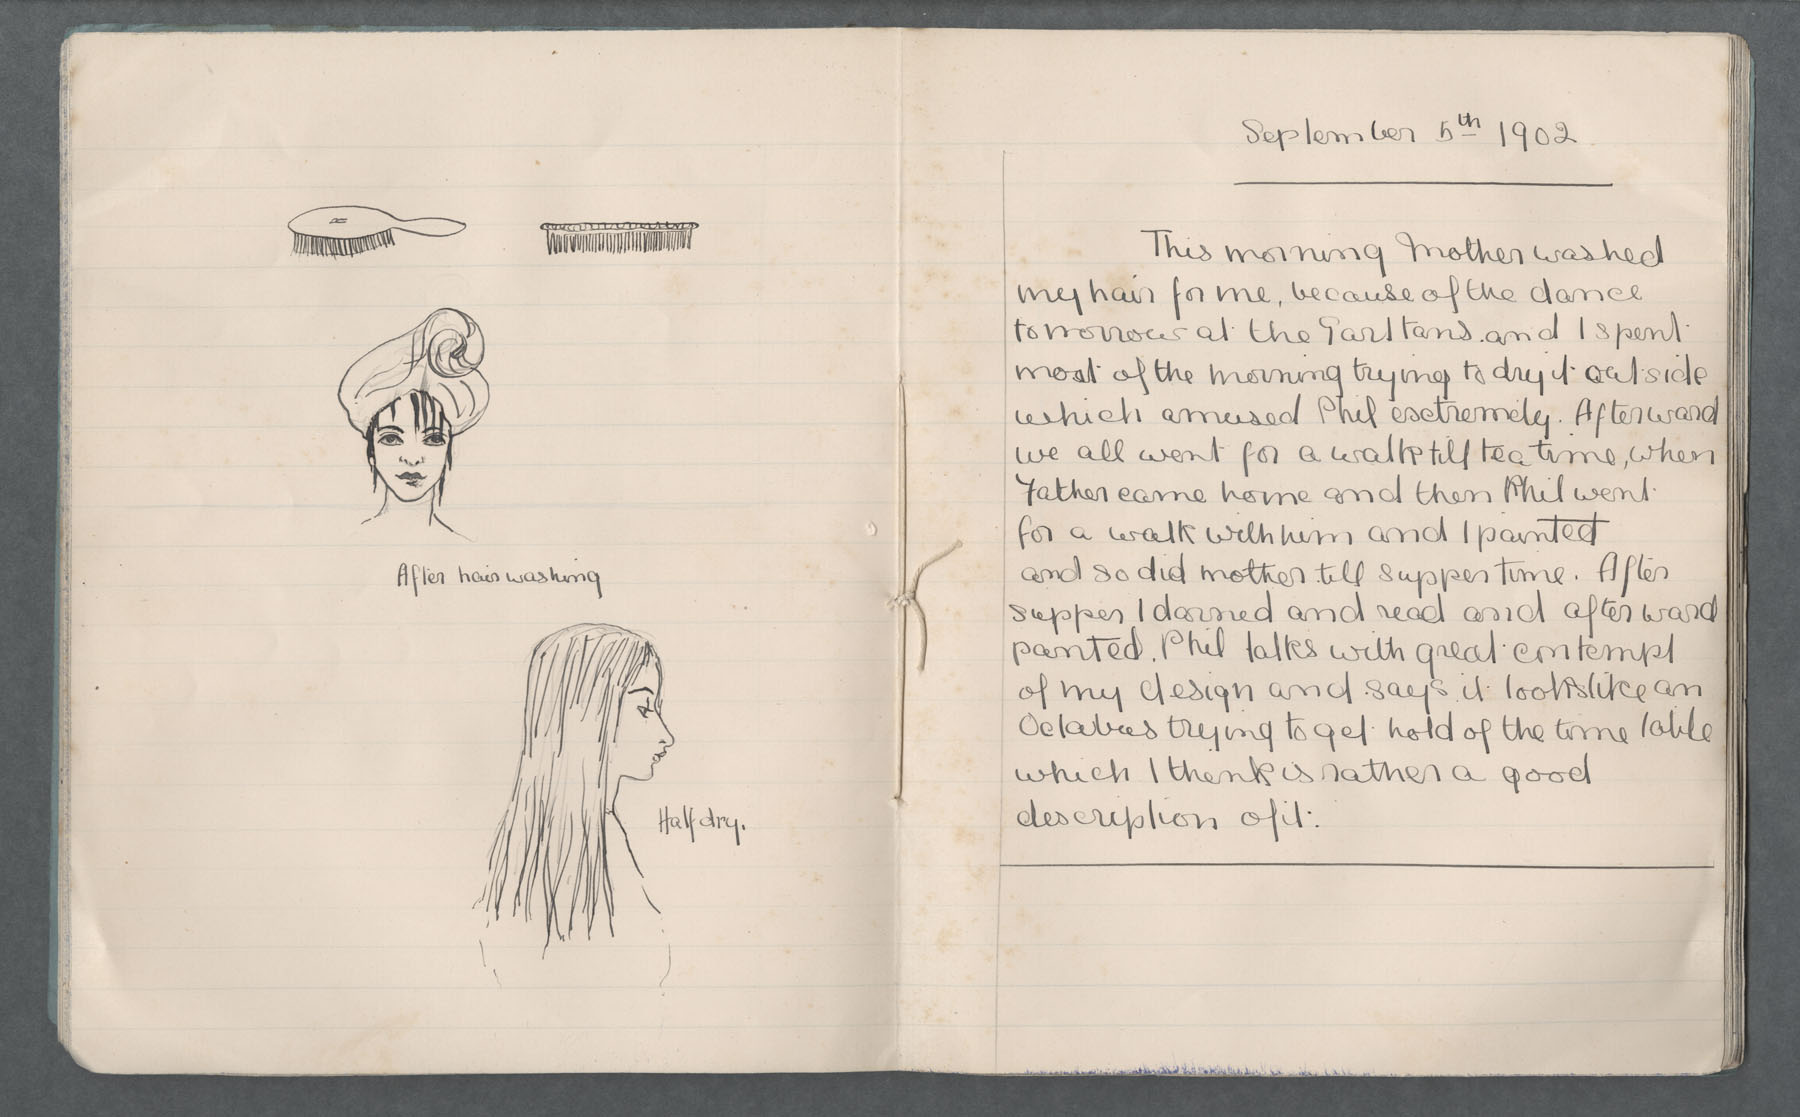 After hair washing
Half dry.
September 5th 1902
This morning Mother washed
my hair for me, because of the dance
tomorrow at the and I spent
most of the morning trying to dry it outside
which amused Phil esctremely. Afterward
we all went for a walk till tea time, when
Father came home and then Phil went
for a walk with him and I painted
and so did mother till supper time. After
supper I darned and read and afterward
painted. Phil talks with great contempt
of my design and says it looks like an
Octabus trying to get hold of the time table
which I think is rather a good
description of it.